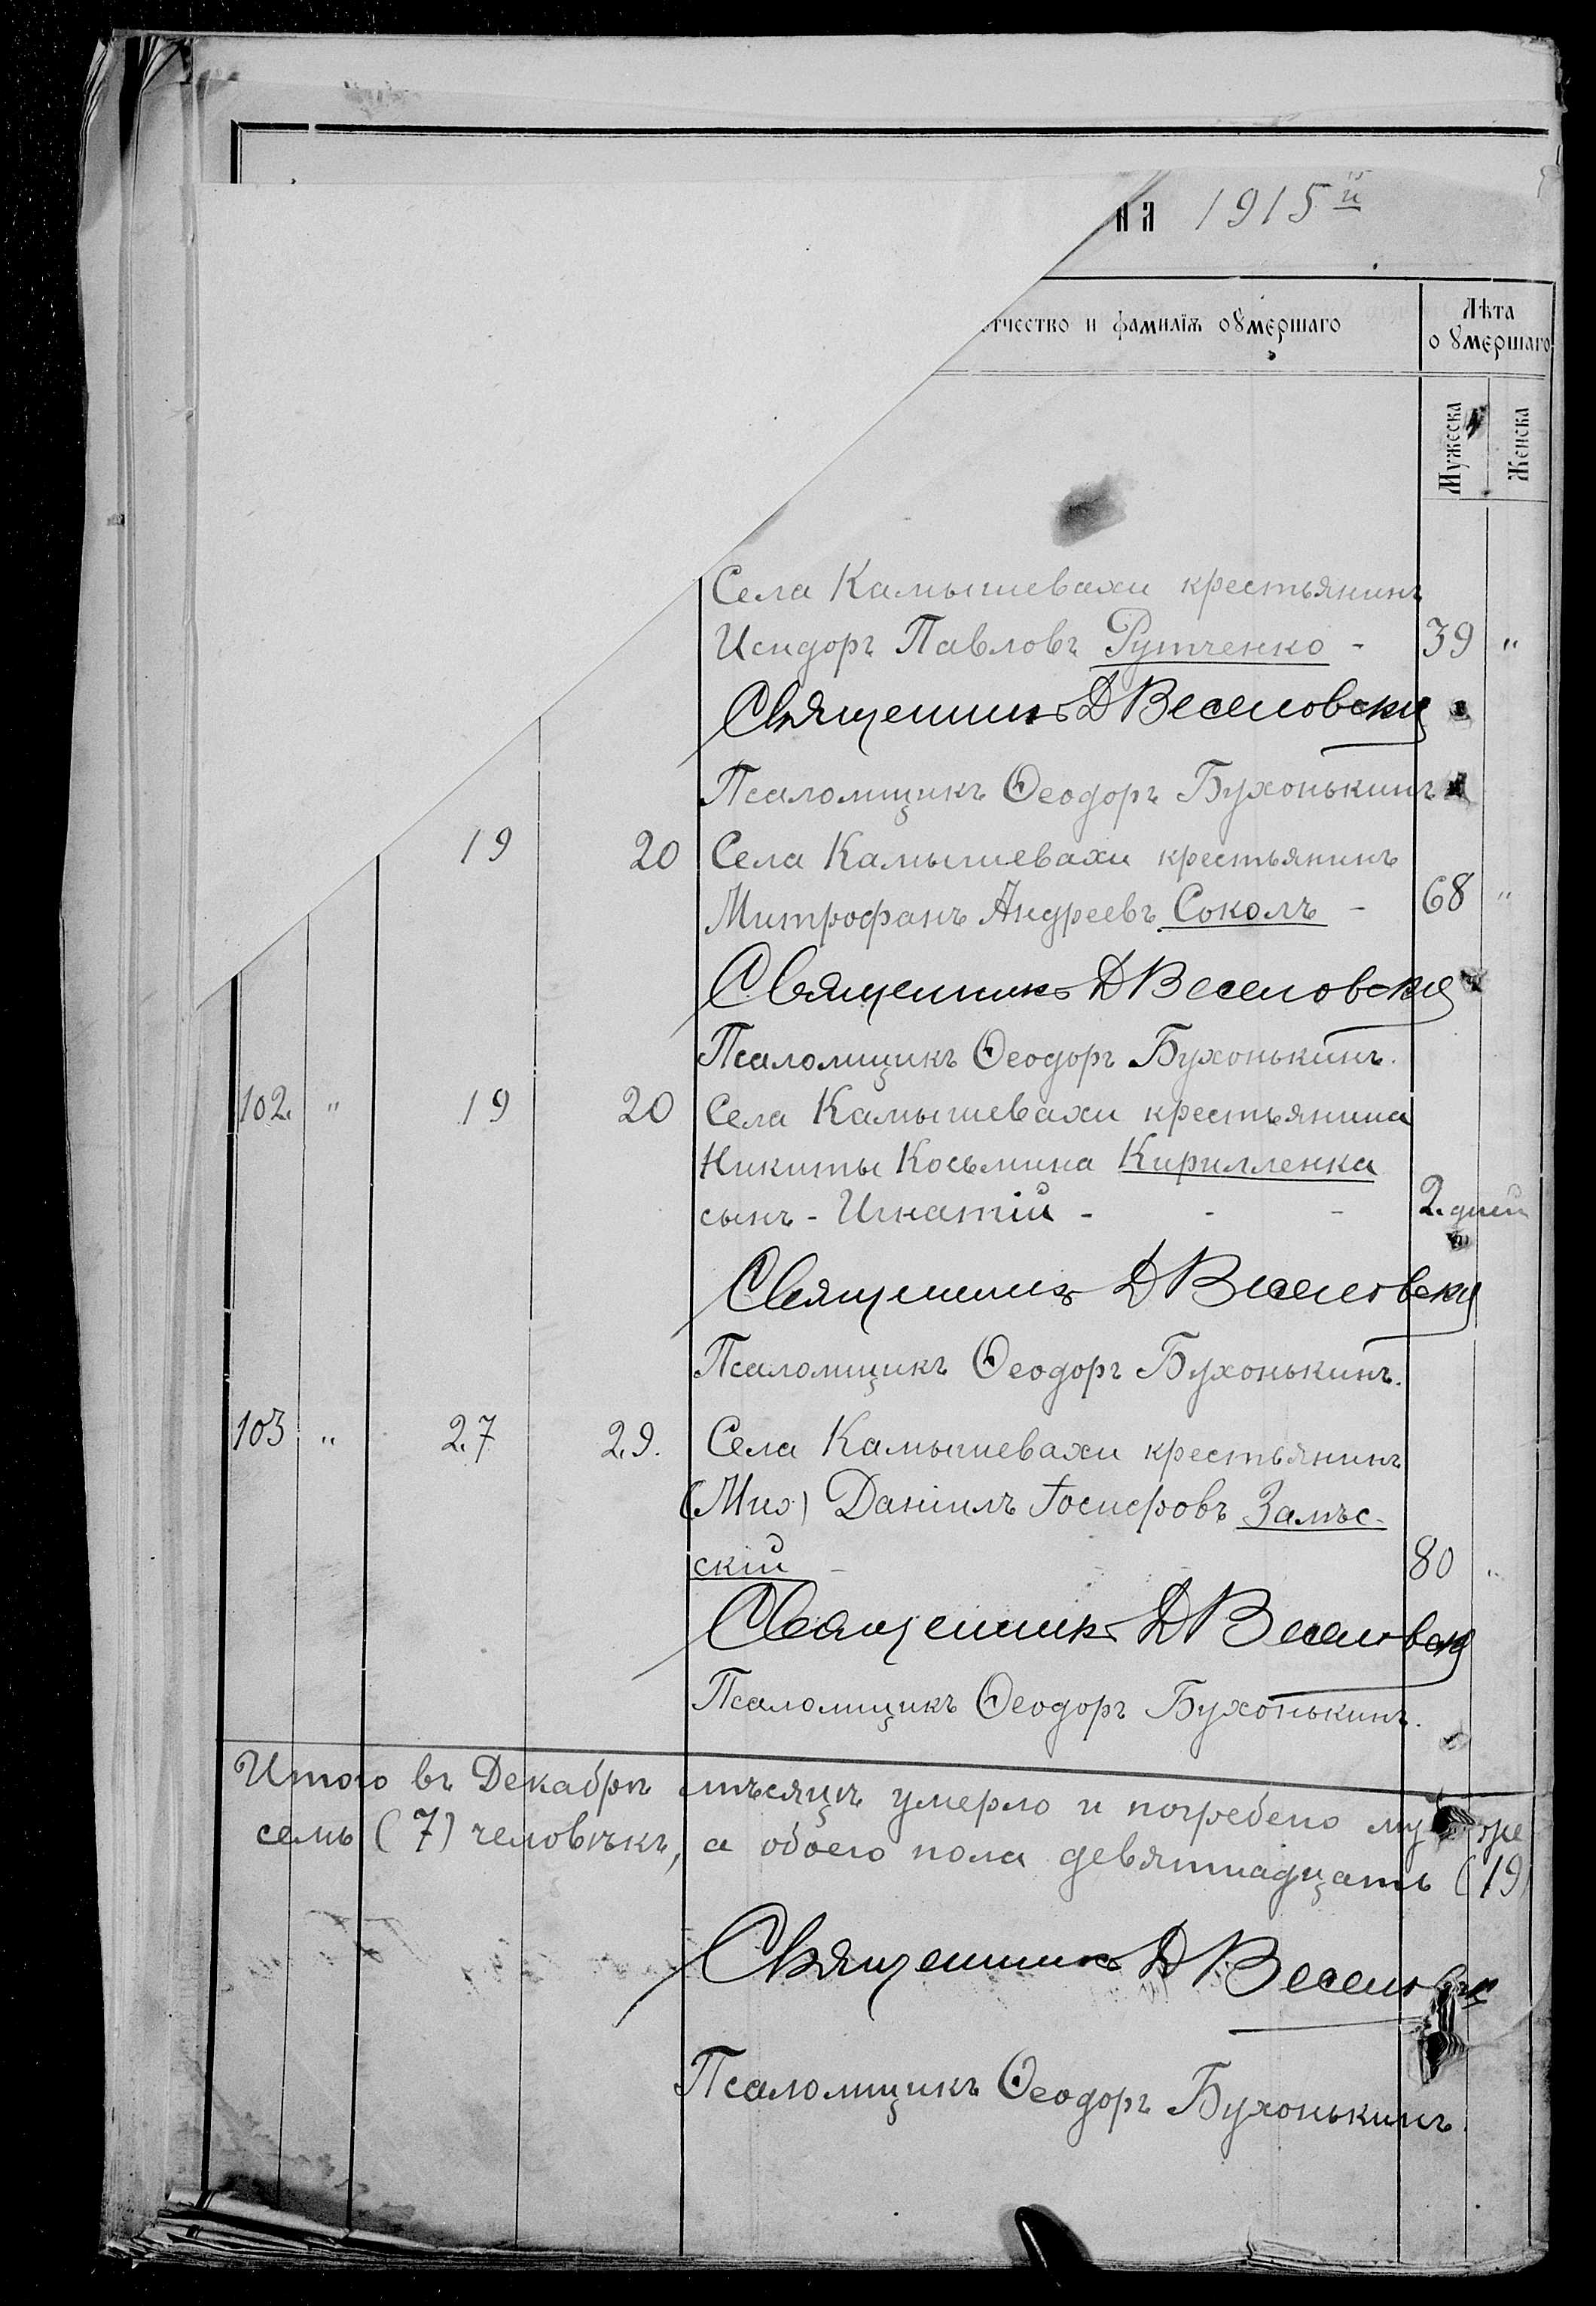 на 1915й
отчество и фамилїѧ оумершаго
Лѣта оумершаго
Мужеска
Женска
Села Камышевахи крестьянинъ
Исидоръ Павловъ Рутченко - 39 "
Священникъ Д Веселовскій
Псаломщикъ Ѳеодоръ Бухонькинъ
19 20 Села Камышевахи крестьянинъ
Митрофанъ Андреевъ Соколъ - 68 "
Священникъ Д Веселовскій
Псаломщикъ Ѳеодоръ Бухонькинъ.
102. " 19 20 Села Камышевахи крестьянина
Никиты Косьмина Кирилленка
сынъ - Игнатій - - - 2. дней
Священникъ Д Веселовскій
Псаломщикъ Ѳеодоръ Бухонькинъ.
103 " 27 29. Села Камышевахи крестьянинъ
(Мих) Даніилъ Іосифовъ
скій - 80 "
Священникъ Д Веселовскій
Псаломщикъ Ѳеодоръ Бухонькинъ.
Итого въ Декабрѣ мѣсяцѣ умерло и погребено
семь (7) человѣкъ, а обоего пола девятнадцать (19)
Священникъ Д Веселовскій
Псаломщикъ Ѳеодоръ Бухонькинъ.